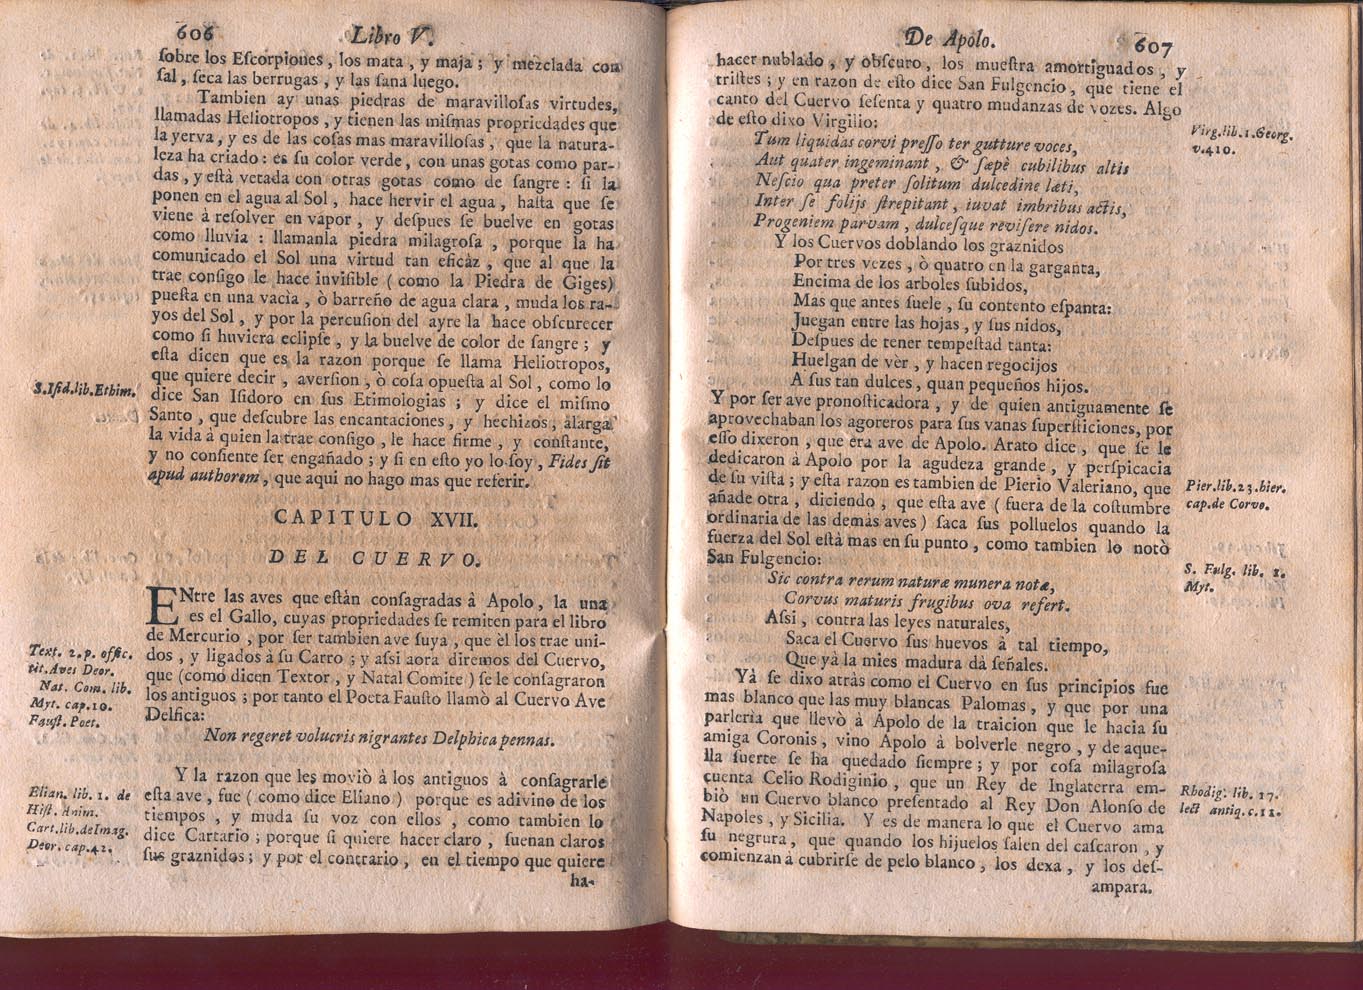 606
Libro V.
sobre los Escorpiones, los mata, y maja; y mezclada con
sal, seca las berrugas, y las sana luego.
Tambien ay unas piedras de maravillosas virtudes,
llamadas Heliotropos, y tienen las mismas propriedades que
la yerva, y es de las cosas mas maravillosas, que la natura-
leza ha criado: es su color verde, con unas gotas como par-
das, y està vetada con otras gotas como de sangre: si la
ponen en el agua al Sol, hace hervir el agua, hasta que se
viene à resolver en vapor, y despues se buelve en gotas
como lluvia: llamanla piedra milagrosa, porque la ha
comunicado el Sol una virtud tan eficàz, que al que la
trae consigo le hace invisible (como la Piedra de Giges)
puesta en una vacìa, ò barreño de agua clara, muda los ra-
yos del Sol, y por la percusion del ayre la hace obscurecer
como si huviera eclipse, y la buelve de color de sangre; y
esta dicen que es la razon porque se llama Heliotropos,
que quiere decir, aversion, ò cosa opuesta al Sol, como lo
S.Isid.lib.Ethim.
dice San Isidoro en sus Etimologias; y dice el mismo
Santo, que descubre las encantaciones, y hechizos, alarga
la vida à quien la trae consigo, le hace firme, y constante,
y no consiente ser engañado; y si en esto yo lo soy, Fides sit
apud authorem, que aqui no hago mas que referir.
CAPITULO XVII.
DEL CUERVO.
ENtre las aves que estàn consagradas à Apolo, la una
es el Gallo, cuyas propriedades se remiten para el libro
de Mercurio, por ser tambien ave suya, que èl los trae uni-
dos, y ligados à su Carro; y assi aora diremos del Cuervo,
que (como dicen Textor, y Natal Comite) se le consagraron
los antiguos; por tanto el Poeta Fausto llamò al Cuervo Ave
Delfica:
Text. 2.p. offic.
tit.Aves Deor.
Nat. Com. lib.
Myt. cap.10.
Faust. Poet.
Non regeret volucris nigrantes Delphica pennas.
Y la razon que les moviò à los antiguos à consagrarle
esta ave, fue (como dice Eliano) porque es adivino de los
tiempos, y muda su voz con ellos, como tambien lo
dice Cartario; porque si quiere hacer claro, suenan claros
sus graznidos; y por el contrario, en el tiempo que quiere
Elian. lib. 1. de
Hist. Anim.
Cart.lib.deImag.
Deor. cap.42.
ha-
De Apolo.
607
hacer nublado, y obscuro, los muestra amortiguados, y
tristes; y en razon de esto dice San Fulgencio, que tiene el
canto del Cuervo sesenta y quatro mudanzas de vozes. Algo
de esto dixo Virgilio:
Virg.lib.1.Georg.
v.410.
Tum liquidas corvi presso ter gutture voces,
Aut quater ingeminant, & sæpè cubilibus altis
Nescio qua preter solitum dulcedine læti,
Inter se folijs strepitant, iuvat imbribus actis,
Progeniem parvam, dulcesque revisere nidos.
Y los Cuervos doblando los graznidos
Por tres vezes, ò quatro en la garganta,
Encima de los arboles subidos,
Mas que antes suele, su contento espanta:
Juegan entre las hojas, y sus nidos,
Despues de tener tempestad tanta:
Huelgan de vèr, y hacen regocijos
A sus tan dulces, quan pequeños hijos.
Y por ser ave pronosticadora, y de quien antiguamente se
aprovechaban los agoreros para sus vanas supersticiones, por
esso dixeron, que era ave de Apolo. Arato dice, que se le
dedicaron à Apolo por la agudeza grande, y perspicacia
de su vista; y esta razon es tambien de Pierio Valeriano, que
añade otra, diciendo, que esta ave (fuera de la costumbre
ordinaria de las demàs aves) saca sus polluelos quando la
fuerza del Sol està mas en su punto, como tambien lo notò
San Fulgencio:
Pier.lib.23.hier.
cap.de Corvo.
S. Fulg. lib. 1.
Myt.
Sic contra rerum naturæ munera notæ,
Corvus maturis frugibus ova refert.
Assi, contra las leyes naturales,
Saca el Cuervo sus huevos à tal tiempo,
Que yà la mies madura dà señales.
Yà se dixo atràs como el Cuervo en sus principios fue
mas blanco que las muy blancas Palomas, y que por una
parleria que llevò à Apolo de la traicion que le hacia su
amiga Coronis, vino Apolo à bolverle negro, y de aque-
lla suerte se ha quedado siempre; y por cosa milagrosa
cuenta Celio Rodiginio, que un Rey de Inglaterra em-
biò un Cuervo blanco presentado al Rey Don Alonso de
Napoles, y Sicilia. Y es de manera lo que el Cuervo ama
su negrura, que quando los hijuelos salen del cascaron, y
comienzan à cubrirse de pelo blanco, los dexa, y los des-
Rhodig. lib. 17.
lect antiq.c.11.
ampara.